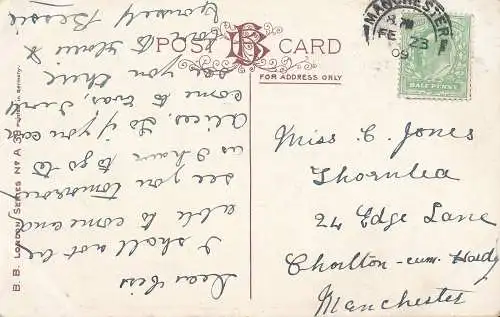 POST B CARD
FOR ADDRESS ONLY
MANCHESTER
FE 23
09
HALF PENNY
B. B. LONDON SERIES No A 38 Printed in Germany.
Dear Ciss
I shall not be
able to come and
see you tomorrow
as I have to go to
Alices, so if you can
come to
see you there
Love to Florrie &
yourself Bessie
Miss C. Jones
Thornlea
24 Edge Lane
Chorlton-cum-Hardy
Manchester